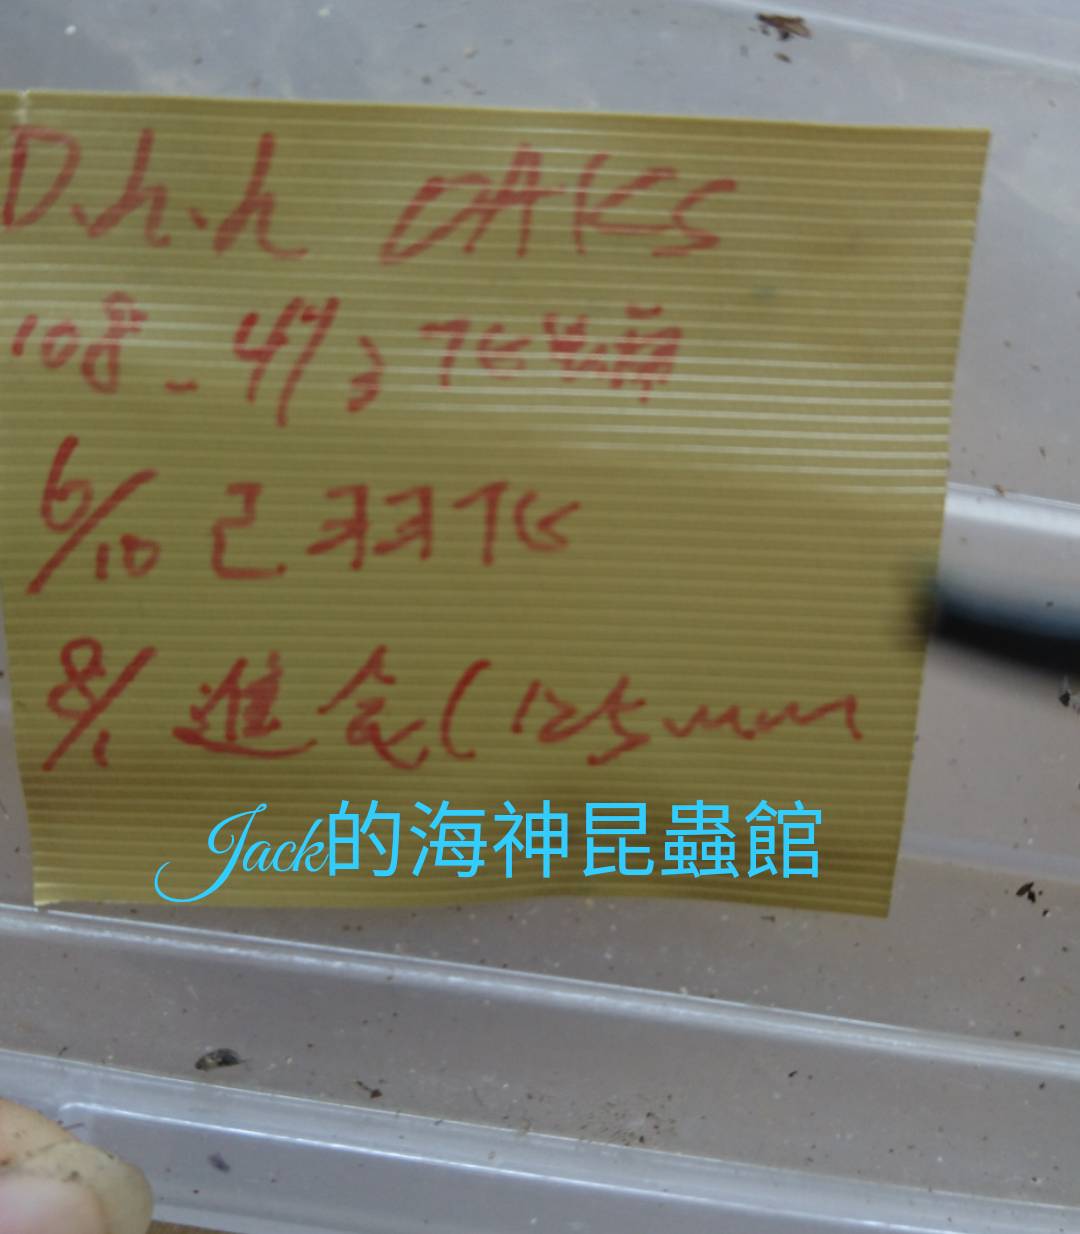 D.h.h OAKS
108-4/3 化蛹
6/10 已羽化
8/1 進食(125mm
Jack的海神昆蟲館